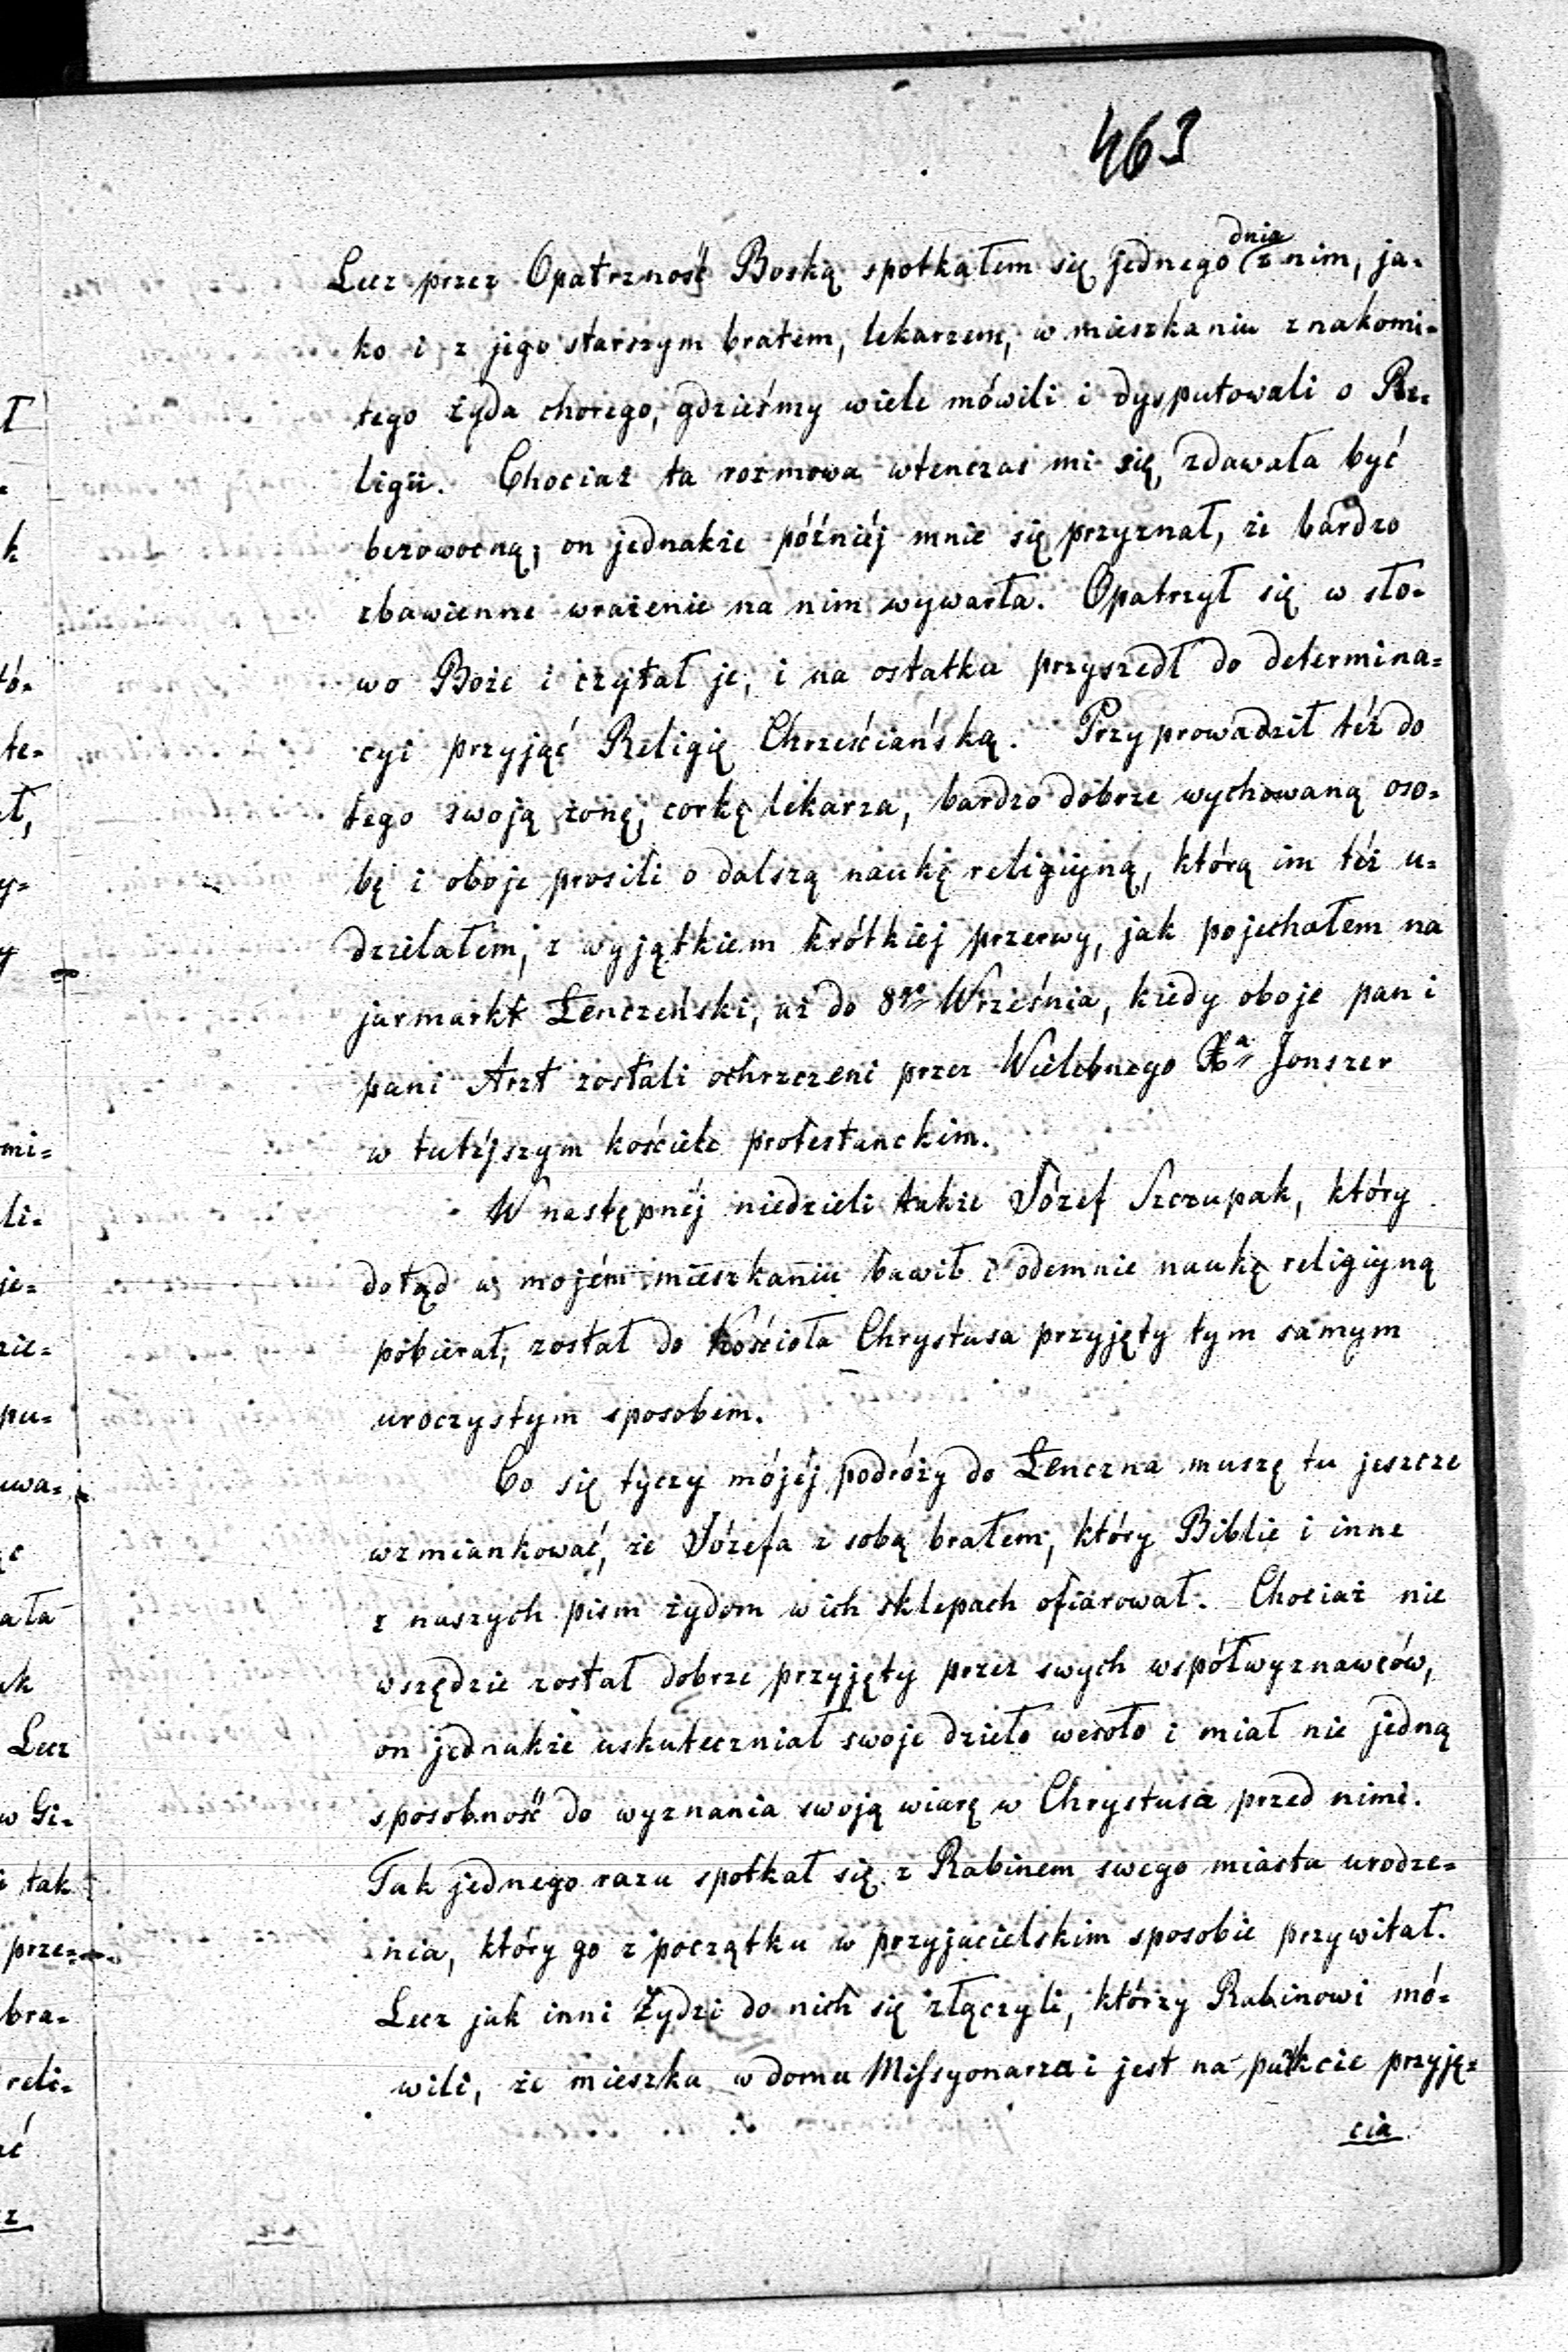 463
Lecz przez Opatrzność Boską spotkałem się jednego dnia z nim, ja-
ko i z jego starszym bratem, lekarzem, w mieszkaniu znakomi-
tego żyda chorego, gdzieśmy wiele mówili i dysputowali o Re-
ligii. Chociaż ta rozmowa wtenczas mi się zdawała być
bezowocną, on jednakże późniéj mnie się przyznał, że bardzo
zbawienne wrażenie na nim wywarła. Opatrzył się w sło-
wo Boże i czytał je, i na ostatku przyszedł do determina=
cyi przyjąć Religię Chrześciańską. Przyprowadził téż do
tego swoją żonę, corkę lekarza, bardzo dobrze wychowaną oso-
bę i oboje prosili o dalszą naukę religijną, którą im téż u=
dzielałem, z wyjątkiem krótkiej przerwy, jak pojechałem na
jarmarkt Łenczeński, aż do 8go Września, kiedy oboje pan i
pani Arzt zostali ochrzczeni przez Wielebnego Xa Jonszer
w tutéjszym kościele protestanckim.
W następnéj niedzieli także Józef Szczupak, który
dotąd w mojém mieszkaniu bawił i odemnie naukę religijną
pobierał, został do Kościoła Chrystusa przyjęty tym samym
uroczystym sposobem.
Co się tyczy mojéj podróży do Łenczna muszę tu jeszcze
wzmiankować, że Józefa z sobą brałem, który Biblie i inne
z naszych pism żydom w ich sklepach ofiarował. Chociaż nie
wszędzie został dobrze przyjęty przez swych współwyznawców,
on jednakże uskuteczniał swoje dzieło wesoło i miał nie jedną
sposobność do wyznania swoją wiarę w Chrystusa przed nimi.
Tak jednego razu spotkał się z Rabinem swego miasta urodze=
nia, który go z początku w przyjacielskim sposobie przywitał.
Lecz jak inni Żydzi do nich się złączyli, którzy Rabinowi mó-
wili, że mieszka w domu Missyonarza i jest na punkcie przyję=
cia